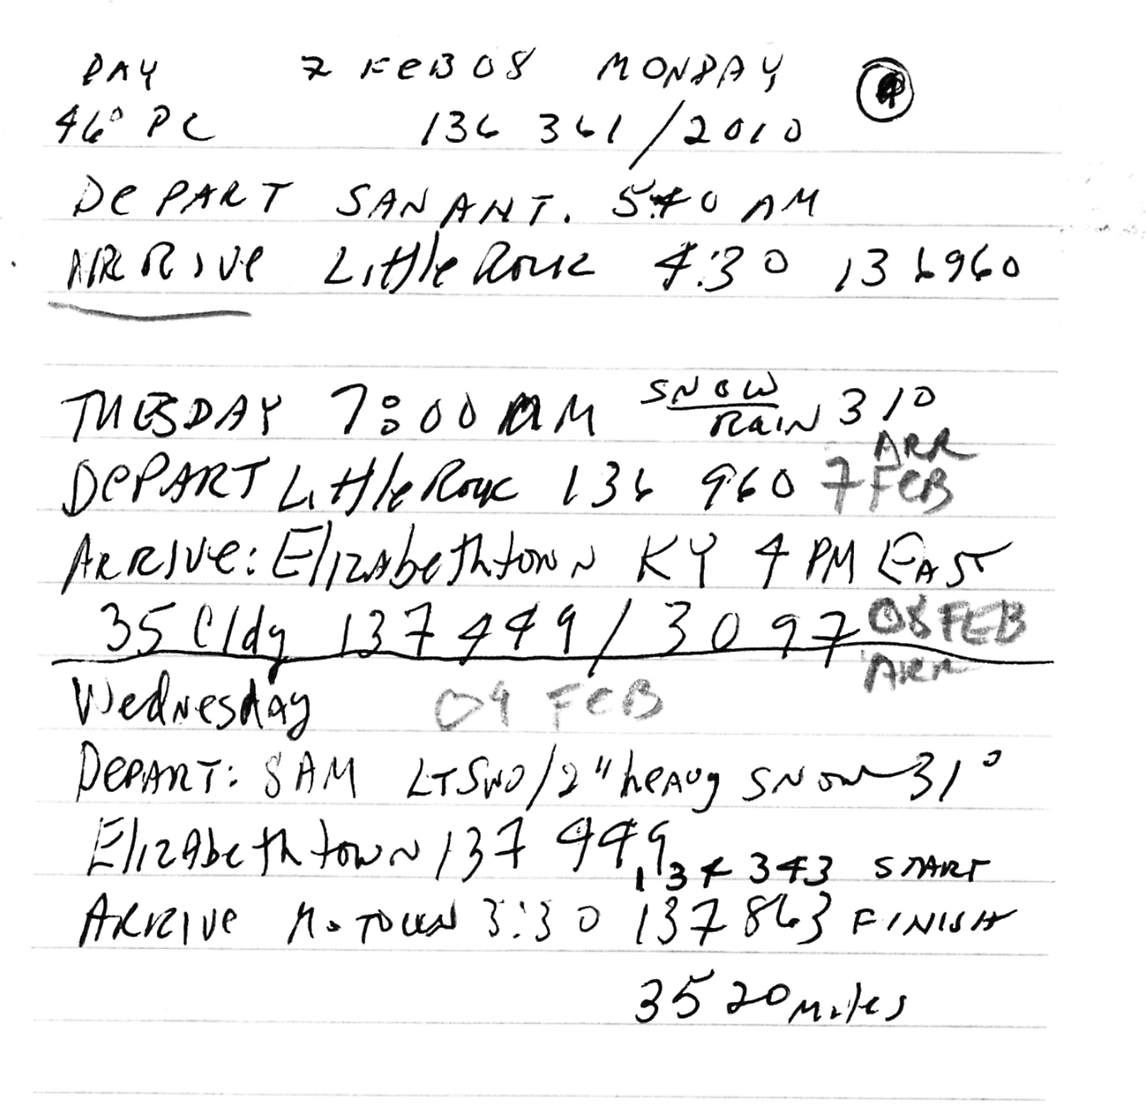 DAY 7 FEB 08 MONDAY 4
46° PC 136 361/2010
DEPART SAN ANT. 5:40 AM
ARRIVE Little Rock 4:30 136960
TUESDAY 7:00 AM SNOW/RAIN 310
ARR
DEPART Little Rock 136 960 7 FEB
ARRIVE: Elizabethtown KY 4 PM EAST
35 Cldy 137 449/3097 08 FEB
ARR
Wednesday 09 FEB
DEPART: 8 AM LT SNO/2" heavy SNOW 31°
Elizabethtown 137 449
134 343 START
ARRIVE M.TOWN 3:30 137863 FINISH
3520 miles